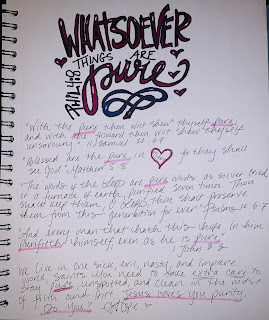 WHATSOEVER
THINGS ARE
pure
PHIL 4:8
"With the pure thou wilt shew thyself pure,
and with the froward thou wilt shew thyself
unsavoury." II Samuel 22:27
"Blessed are the pure in heart for they shall
see God" Matthew 5:8
"The words of the LORD are pure words: as silver tried
in a furnace of earth, purified seven times. Thou
shalt keep them, O LORD, thou shalt preserve
them from this generation for ever" Psalms 12:6-7
"And every man that hath this hope in him
purifieth himself even as he is pure."
John 3:3
We live in one sick, evil, nasty, and impure
world saints. You need to have extra care to
stay pure, unspotted, and clean in the midst
of filth and dirt. Jesus loves you purity,
Do You?